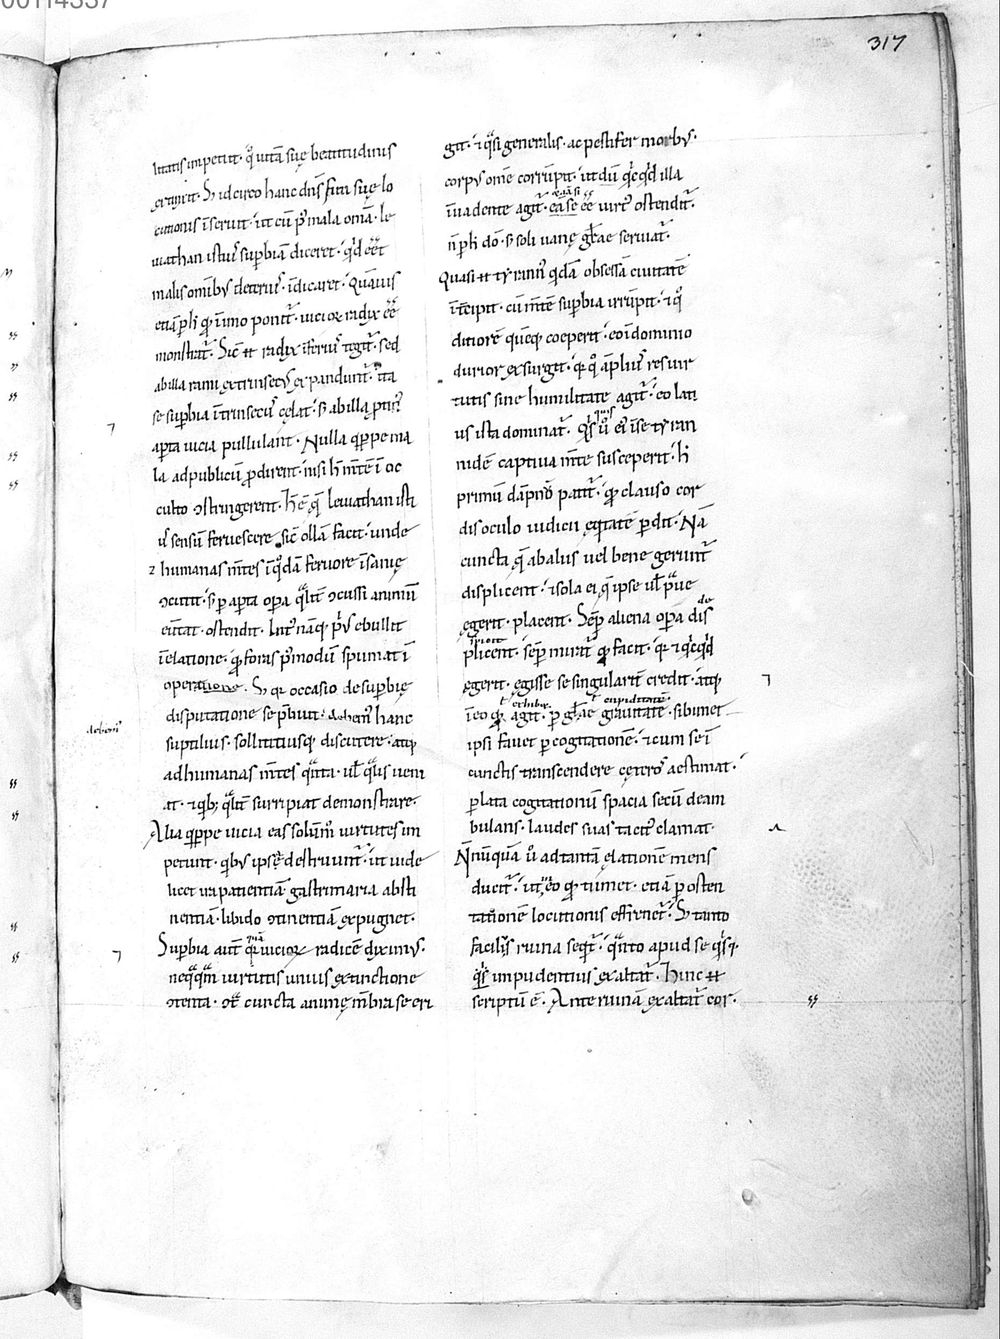 317
litatis impetit· q̊ uitā suę beatitudinis
extinxit· S; idcirco hanc dn̄s fini suę lo
cutionis īseruit· ut cū p᷒ mala om̄a· le
uiathan istiꝰ supbiā diceret· qd̓ eēt
malis omībꝰ deteriꝰ· īdicaret· Quāuis
etiā ꝑ h̓ qđ ī imo ponit᷒· uicioꝝ radix eē
monstrat᷒· Sic̄ ⁊t radix īferiꝰ tegit᷒· sed
ab illa rami extrinsecꝰ expandunt᷒· ita
se supbia ītrinsecꝰ cęlat· s; ab illa ꝓtinꝰ
apta uicia pullulant· Nulla q̓ppe ma
la ad publicū ꝓdirent· nisi h̓ m̄te ī oc
culto ↄstringerent· H̓ ē q̄ leuiathan isti
ꝰ sensū feruescere sic̄ ollā facit· unde
humanas m̄tes ī q̊dā feruore īsanię
ↄcutit· s; ꝑ apta opa qͣlit̄ ↄcussi animū
eūtat· ostendit· Int᷒ nāq; p̓ꝰ ebullit
ī elatione· qđ foras p᷒modū spumat ī
operatione· S; qꝛ occasio de supbię
disputatione se p̄buit· debem᷒ hanc
debem᷒
suptilius· sollicitiusq; discutere· atq;
ad humanas m̄tes qͣnta· ul̄ qͣlis ueni
at· ⁊ q̓b; qͣlit̄ surripiat demonstrare·
Alia q̓ppe uicia eas solūm᷒ uirtutes im
petunt· q̓bꝰ ipsę destruunt᷒· ut uide
licet ira patientiā gastrimaria absti
nentiā· libido ↄtinentiā expugnet·
Supbia aut̄ quā uicioꝝ radicē diximꝰ·
neqͣqͣm uirtutis unius extinctione
ↄtenta· ↄt̄ cuncta animę m̄bra se eri
git· ⁊ qͣsi generalis· ac pestifer morbꝰ·
corpꝰ om̄e corrūpit· ut dū q̓cq̓d illa
īuadente agit᷒· ea se eē uirtꝰ ostendit᷒·
ea si eē
n̄ ꝑ h̓ dō· s; soli uanę gl̄ae seruiat᷒·
Quasi ⁊t tyrannꝰ q̓dā obsessā ciuitatē
īt̄cipit· cū m̄te supbia irrūpit· ⁊ q̊
ditiorē quēq; coeperit· eo ī dominio
durior exsurgit· qꝛ q̊ āpliuꝰ res uir
tutis sine humilitate agit᷒· eo lati
us ista dominat᷒· Q̓s᷒ ů ei ī se tyran
nidē captiua m̄te susceperit· h̓
primū dāpnū patit᷒· qđ clauso cor
dis oculo iudicii eq̓tatē ꝑdit· Nā
cuncta q̄ ab aliis uel bene gerunt᷒
displicent· ⁊ sola ei q̄ ipse ul̄ pͣue
egerit· placent· Sēp aliena opa dis
de
plicent· sēp mirat᷒ qđ facit· qꝛ ⁊ q̓cq̓d
egerit· egisse se singularit̄ credit· atq;
exhibꝫ
cupiditatē
ī eo qđ agit· ꝑ gl̄ae grauitatē· sibimet
ipsi fauet ꝑ cogitationē· ⁊ cum se ī
cunctis transcendere cęterꝰ aestimat·
ꝑ lata cogitationū spacia secū deam
bulans· laudes suas tacitꝰ clamat·
Nn̄nūquā ů ad tantā elationē mens
ducit᷒· ut eo qđ tumet· etiā ꝑ osten
tationē locutionis effrenet᷒· S; tanto
facilis ruina seq̓t᷒· qͣnto apud se q̓sq;
impudentius exaltat᷒· Hinc ⁊t
scriptū ē· Ante ruinā exaltat᷒ cor·